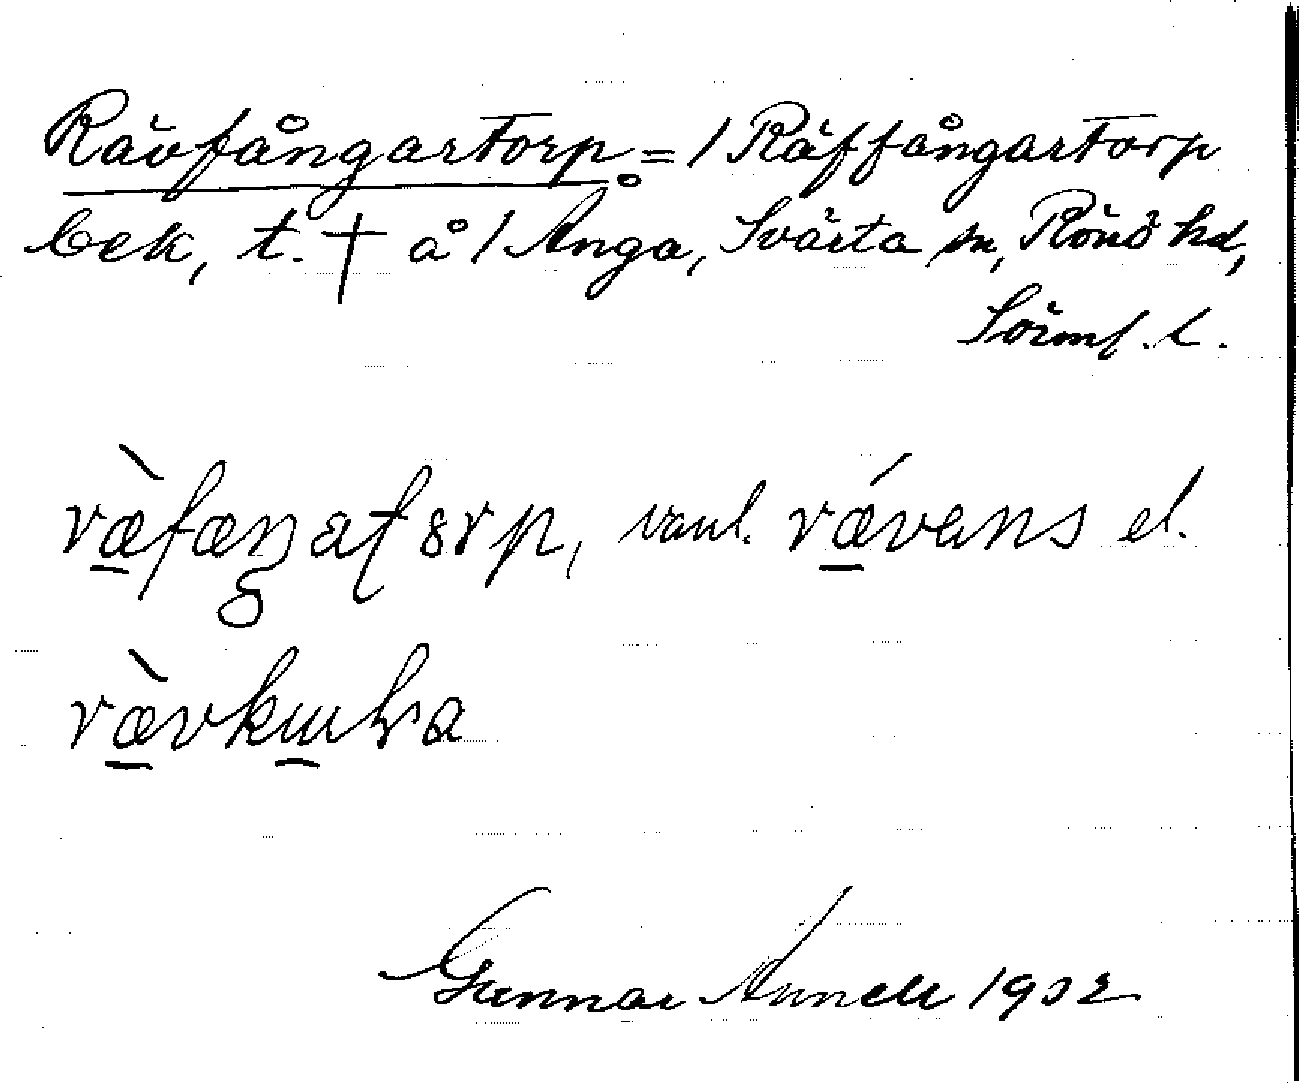 Rävfångartorp = / Räffångartorp
bek, t. † å / Ånga, Svärta sn, Rönö hd,
Sörml. l.
ræ̀fæŋatorp, vanl. rǽvens el.
ræ̀vkuka
Gunnar 1932